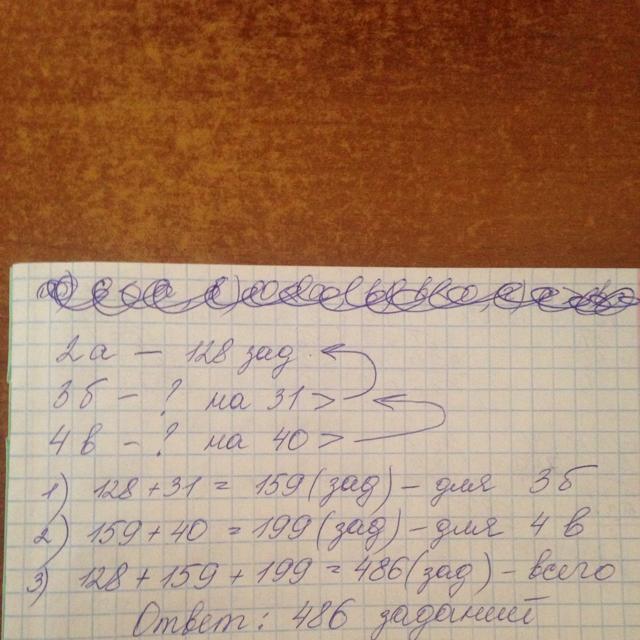 2а — 128 зад.
3б – ? на 31 >
4в – ? на 40 >
1) 128 + 31 = 159 (зад) – для 3б
2) 159 + 40 = 199 (зад) – для 4 в
3) 128 + 159 + 199 = 486 (зад) – всего
Ответ: 486 заданий